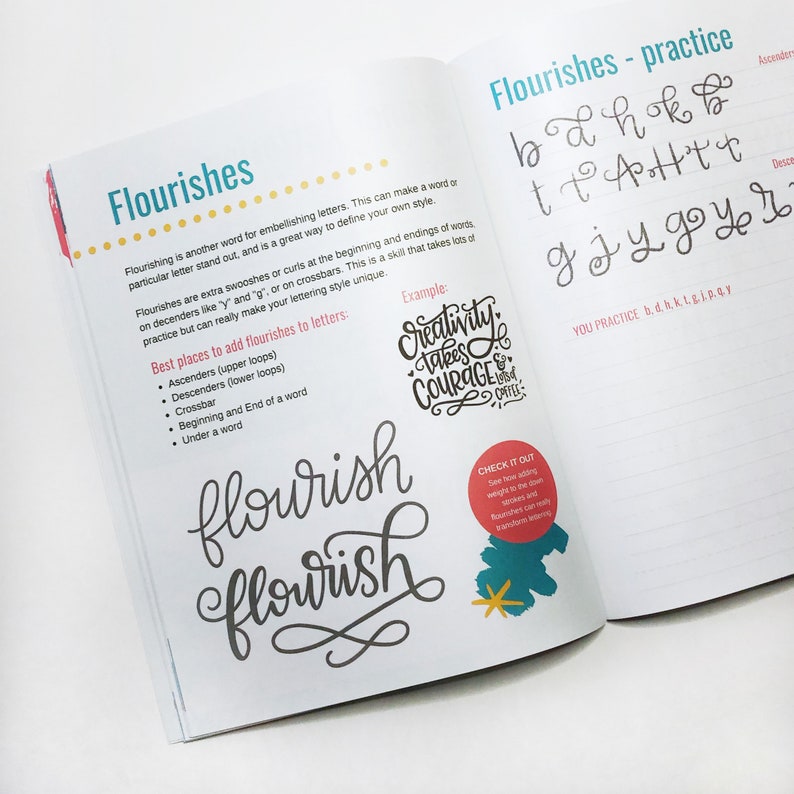 Flourishes
Flourishing is another word for embellishing letters. This can make a word or
particular letter stand out, and is a great way to define your own style.
Flourishes are extra swooshes or curls at the beginning and endings of words,
on decenders like "y" and "g", or on crossbars. This is a skill that takes lots of
practice but can really make your lettering style unique.
Best places to add flourishes to letters:
• Ascenders (upper loops)
• Descenders (lower loops)
• Crossbar
• Beginning and End of a word
• Under a word
Example:
Creativity
takes
COURAGE
& LOTS of
COFFEE
flourish
flourish
CHECK IT OUT
See how adding
weight to the down
strokes and
flourishes can really
transform lettering.
Flourishes - practice
Ascenders
b d h k b
t t A H t t
Desce
g j y g y r
YOU PRACTICE b, d, h, k, t, g, j, p, q, y